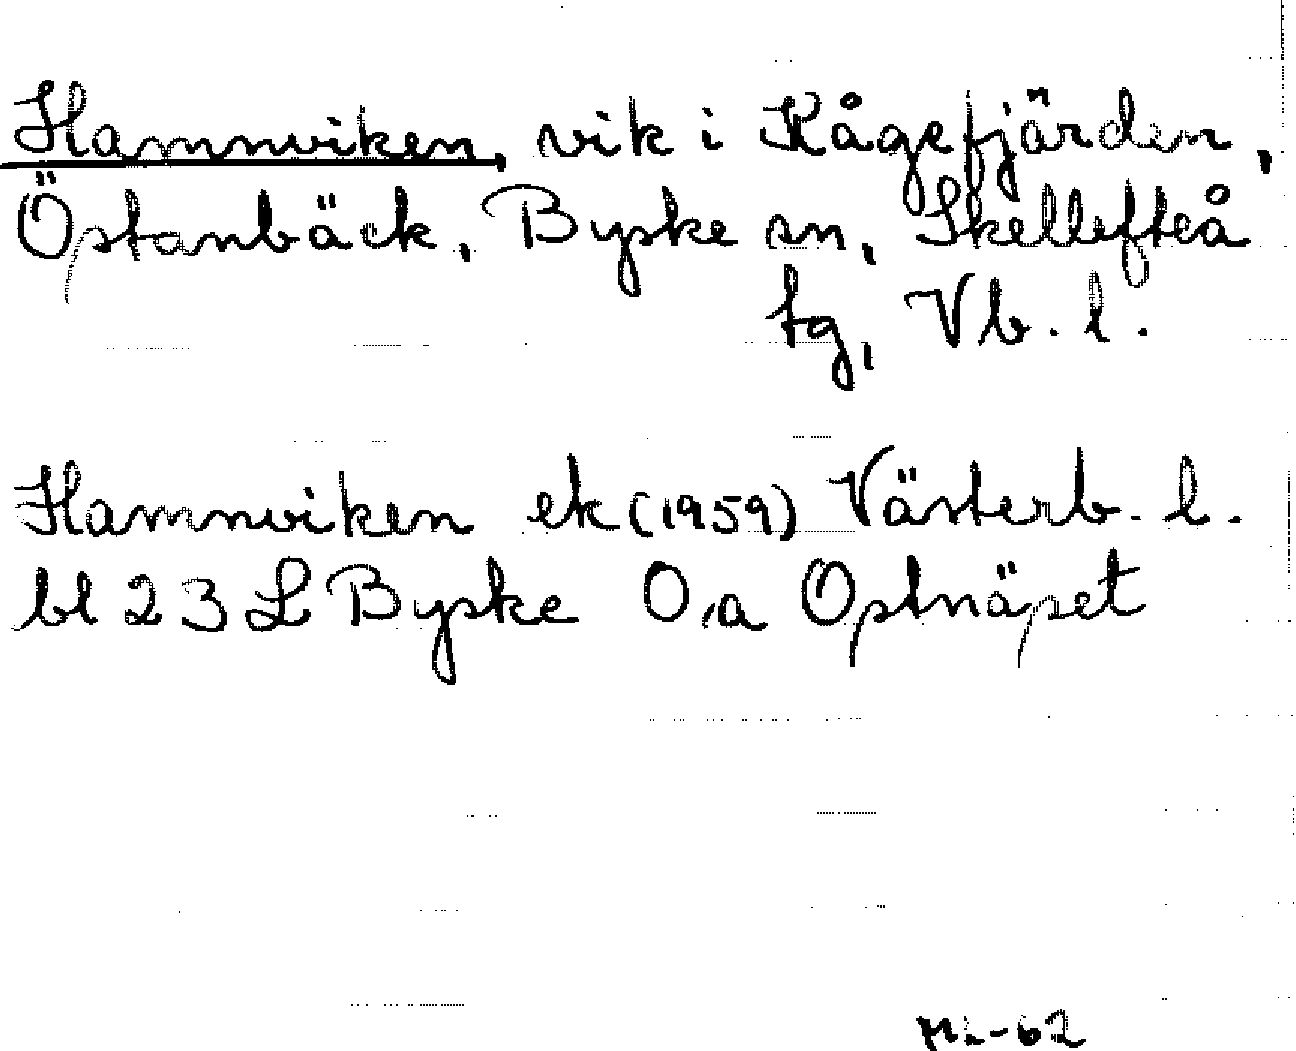 Hamnviken, vik i Kågefjärden,
Östanbäck, Byske sn, Skellefteå
tg, Vb. l.
Hamnviken ek (1959) Västerb. l.
bl 23 L Byske O,a Ostnäset
ML-62